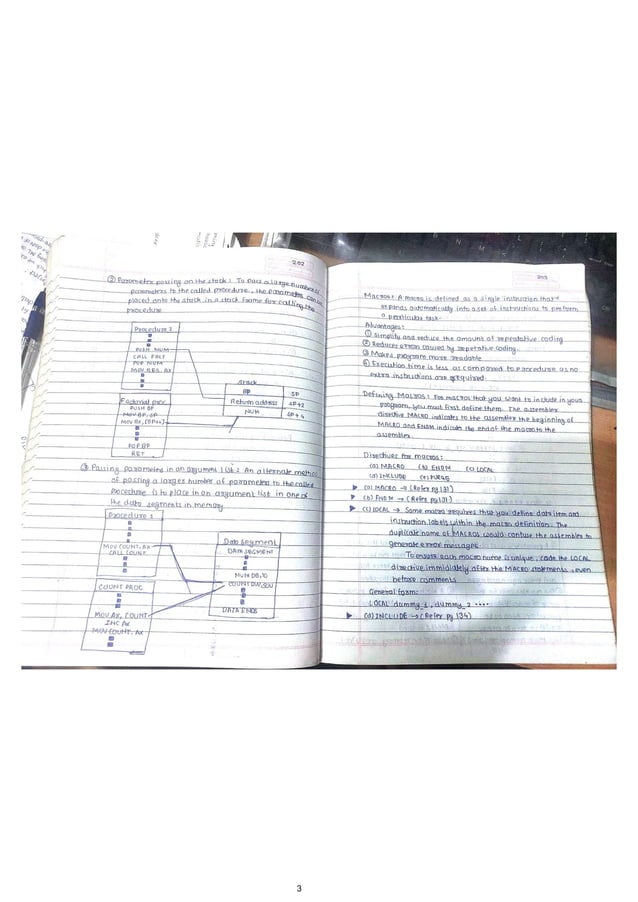 202
② Parameter passing on the stack : To pass a large number of
parameters to the called procedure, the parameters can be
placed onto the stack in a stack frame for calling the
procedure
Procedure 1
PUSH NUM
CALL FACT
POP NUM
MOV RES, AX
Factorial proc
PUSH BP
MOV BP, SP
MOV AX, [BP+4]
POP BP
RET
Stack
BP SP
Return address SP+2
NUM SP+4
③ Passing parameters in an argument list : An alternate method
of passing a larges number of parameters to the called
procedure is to place in an argument list in one of
the data segments in memory
Procedure 1
MOV COUNT, AX
CALL COUNT
COUNT PROC
MOV AX, COUNT
INC AX
MOV COUNT, AX
Data segment
DATA SEGMENT
NUM DB 10
COUNT DW
DATA ENDS
203
Macros : A macro is defined as a single instruction that
expands automatically into a set of instructions to perform
a particular task.
Advantages :
① Simplify and reduce the amount of repetative coding
② Reduces errors caused by repetative coding.
③ Makes program more readable
④ Execution time is less as compared to procedure as no
extra instructions are required
Defining Macros : For macros that you want to include in your
program, you must first define them. The assembler
directive MACRO indicates to the assembler the beginning of
MACRO and ENDM indicate the end of the macro to the
assembler
Directives for macros :
(a) MACRO (b) ENDM (c) LOCAL
(d) INCLUDE (e) PURGE
(a) MACRO → (Refer pg 131)
(b) ENDM → (Refer pg 131)
(c) LOCAL → Some macro requires that you define data item and
instruction labels within the macro definition. The
duplicate name of MACROS would confuse the assembler to
generate error messages.
To ensure each macro name is unique, code the LOCAL
directive immidiately after the MACRO statements, even
before comments
General form :
LOCAL dummy_1, dummy_2 ....
(d) INCLUDE → (Refer pg 134)
3